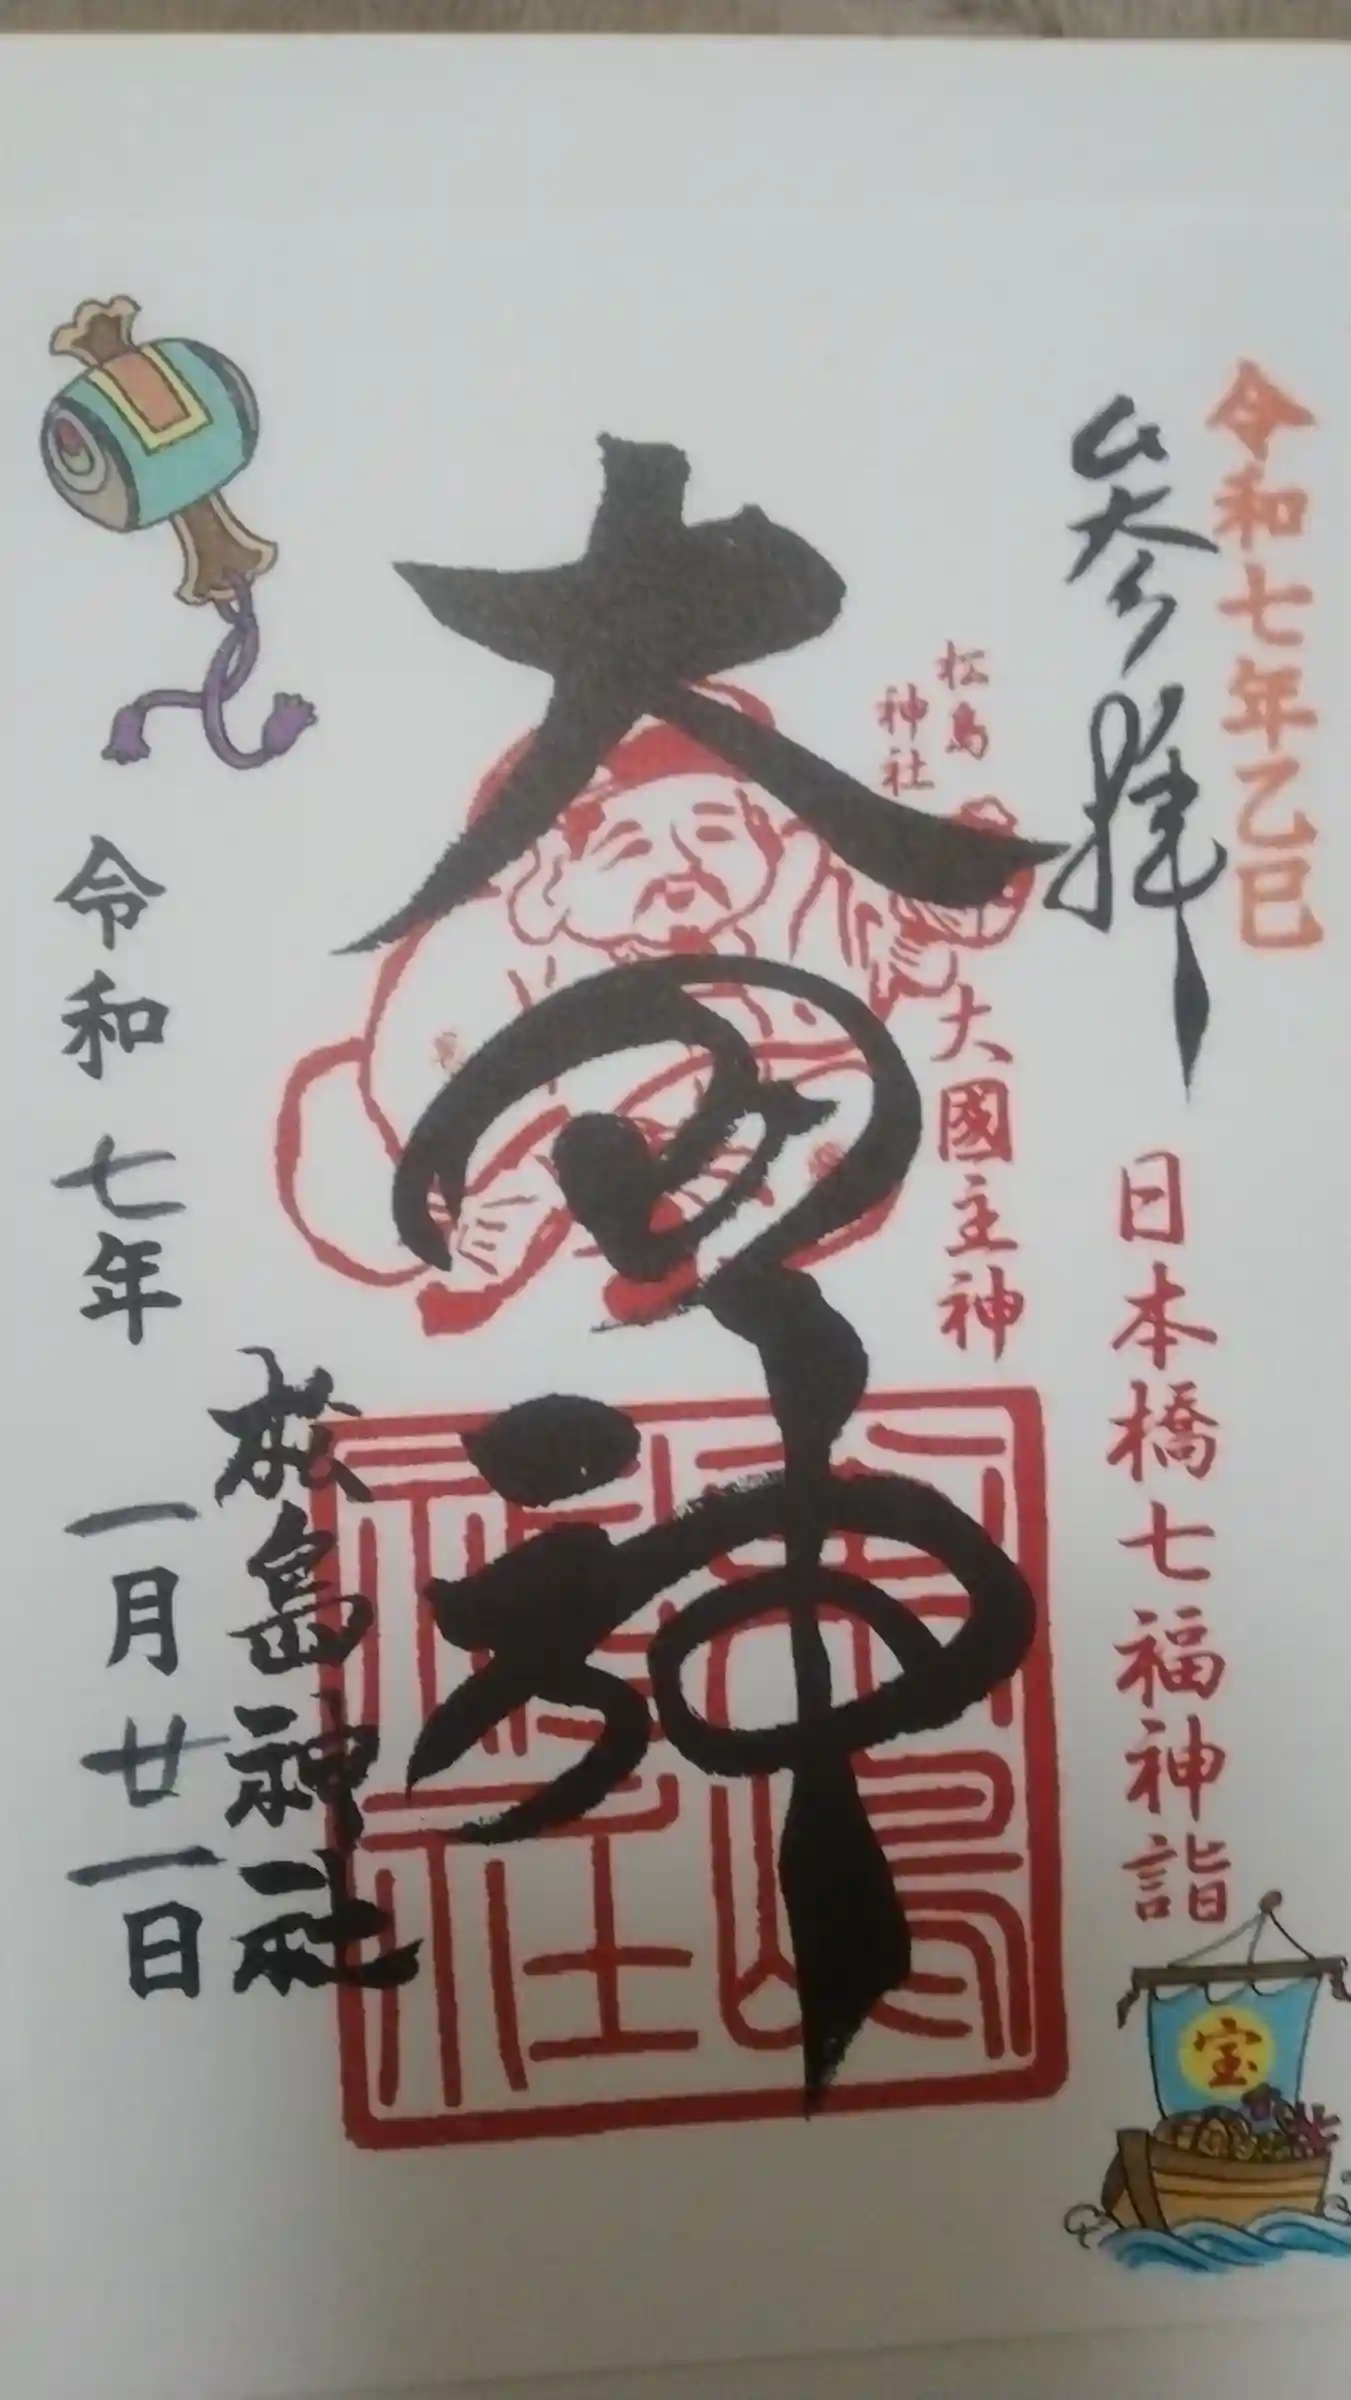 令和七年乙巳
参拝
日本橋七福神詣
宝
松島
神社
大國主神
大国神
松島神社
令和七年
一月廿一日